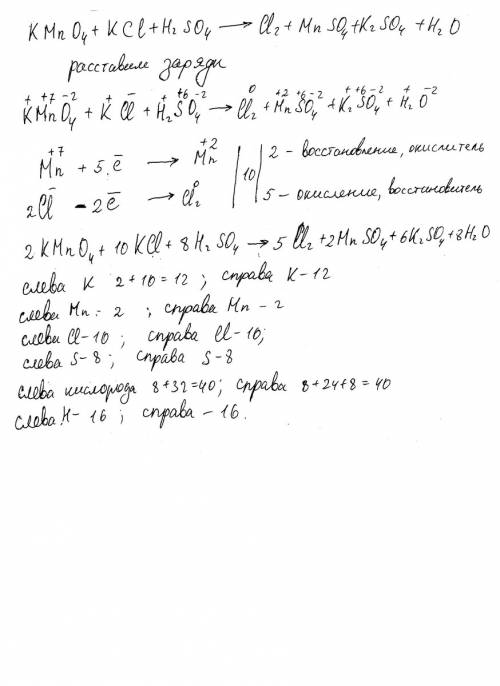 KMnO₄ + KCl + H₂SO₄ → Cl₂ + MnSO₄ + K₂SO₄ + H₂O
расставим заряди
K⁺Mn⁺⁷O₄⁻² + K⁺Cl⁻ + H₂⁺S⁺⁶O₄⁻² → Cl₂⁰ + Mn⁺²S⁺⁶O₄⁻² + K₂⁺S⁺⁶O₄⁻² + H₂⁺O⁻²
Mn⁺⁷ + 5ē → Mn⁺² | 10 | 2 - восстановление, окислитель
2Cl⁻ - 2ē → Cl₂⁰ | | 5 - окисление, восстановитель
2KMnO₄ + 10KCl + 8H₂SO₄ → 5Cl₂ + 2MnSO₄ + 6K₂SO₄ + 8H₂O
слева K 2+10=12 ; справа K-12
слева Mn - 2 ; справа Mn - 2
слева Cl-10 ; справа Cl-10;
слева S-8 ; справа S-8
слева кислорода 8+32=40; справа 8+24+8=40
слева H- 16 ; справа - 16.